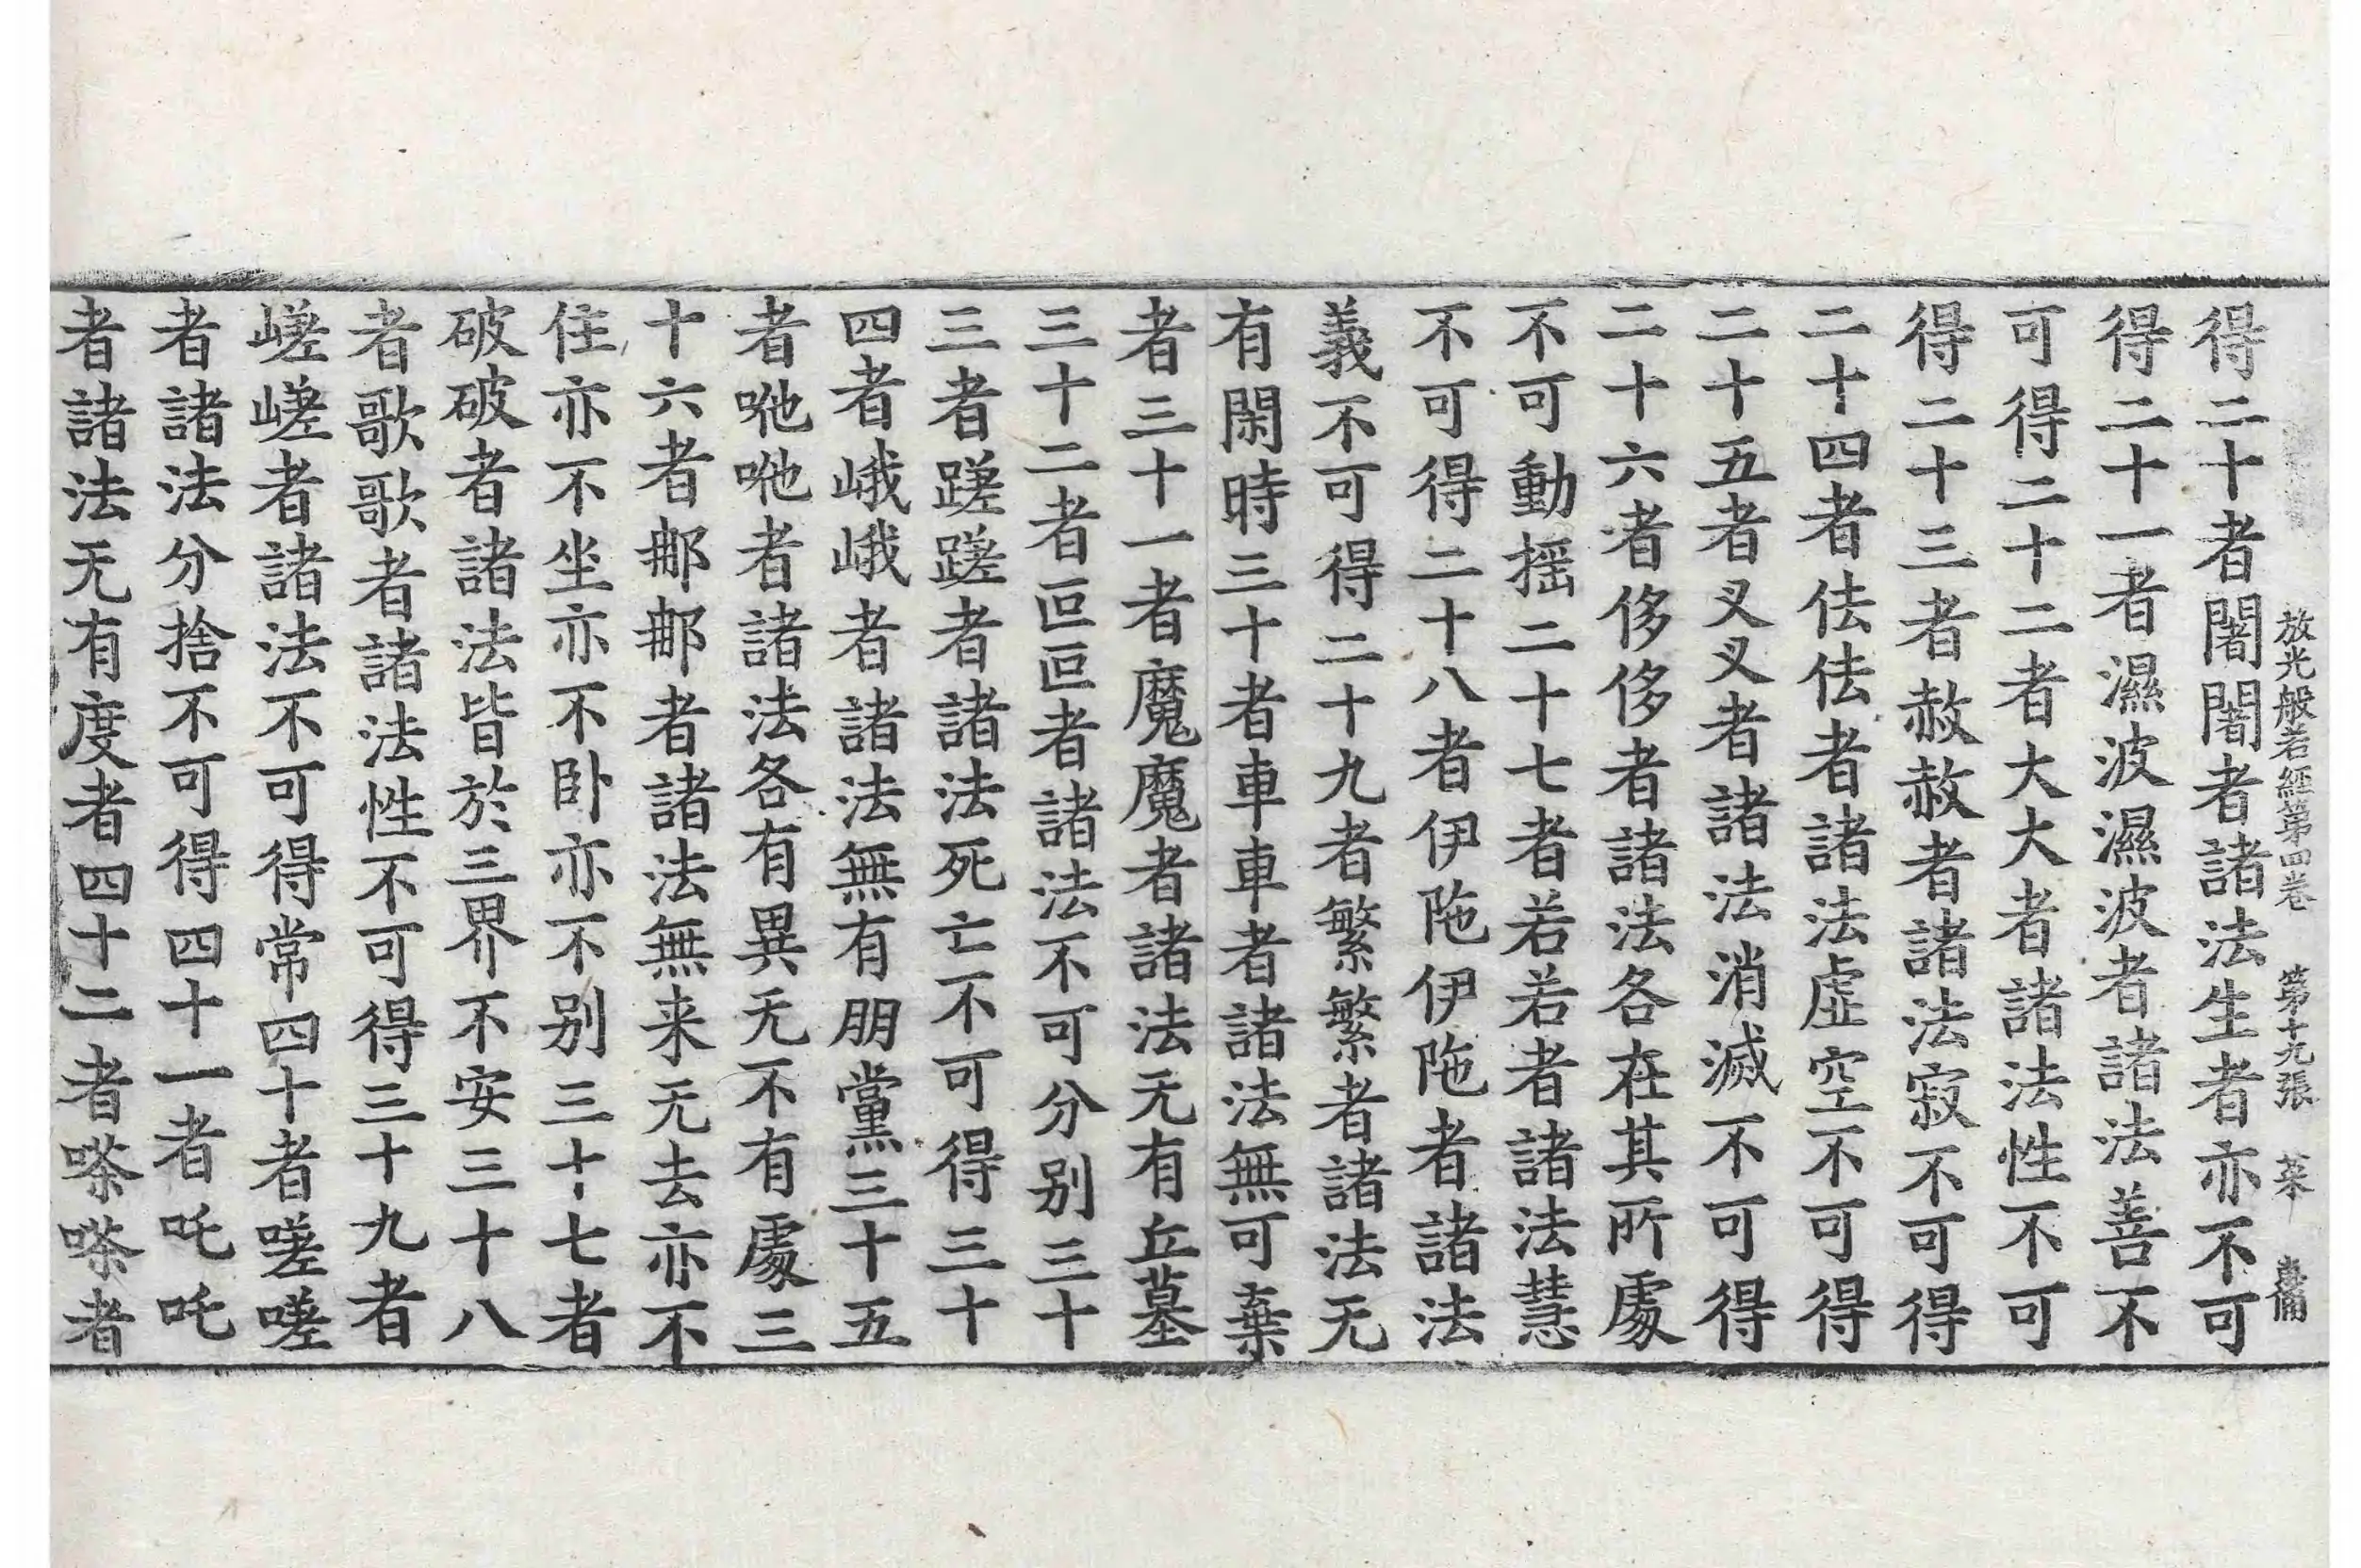 放光般若經第四卷　第十九張　菜
得二十者闍闍者諸法生者亦不可
得二十一者濕波濕波者諸法善不
可得二十二者大大者諸法性不可
得二十三者赦赦者諸法寂不可得
二十四者佉佉者諸法虛空不可得
二十五者叉叉者諸法消滅不可得
二十六者侈侈者諸法各在其所處
不可動搖二十七者若若者諸法慧
不可得二十八者伊陁伊陁者諸法
義不可得二十九者繁繁者諸法无
有閑時三十者車車者諸法無可棄
者三十一者魔魔者諸法无有丘墓
三十二者叵叵者諸法不可分别三十
三者蹉蹉者諸法死亡不可得三十
四者峨峨者諸法無有朋黨三十五
者咃咃者諸法各有異无不有處三
十六者那那者諸法無来无去亦不
住亦不坐亦不卧亦不别三十七者
破破者諸法皆於三界不安三十八
者歌歌者諸法性不可得三十九者
嵯嵯者諸法不可得常四十者嗟嗟
者諸法分捨不可得四十一者吒吒
者諸法无有度者四十二者嗏嗏者